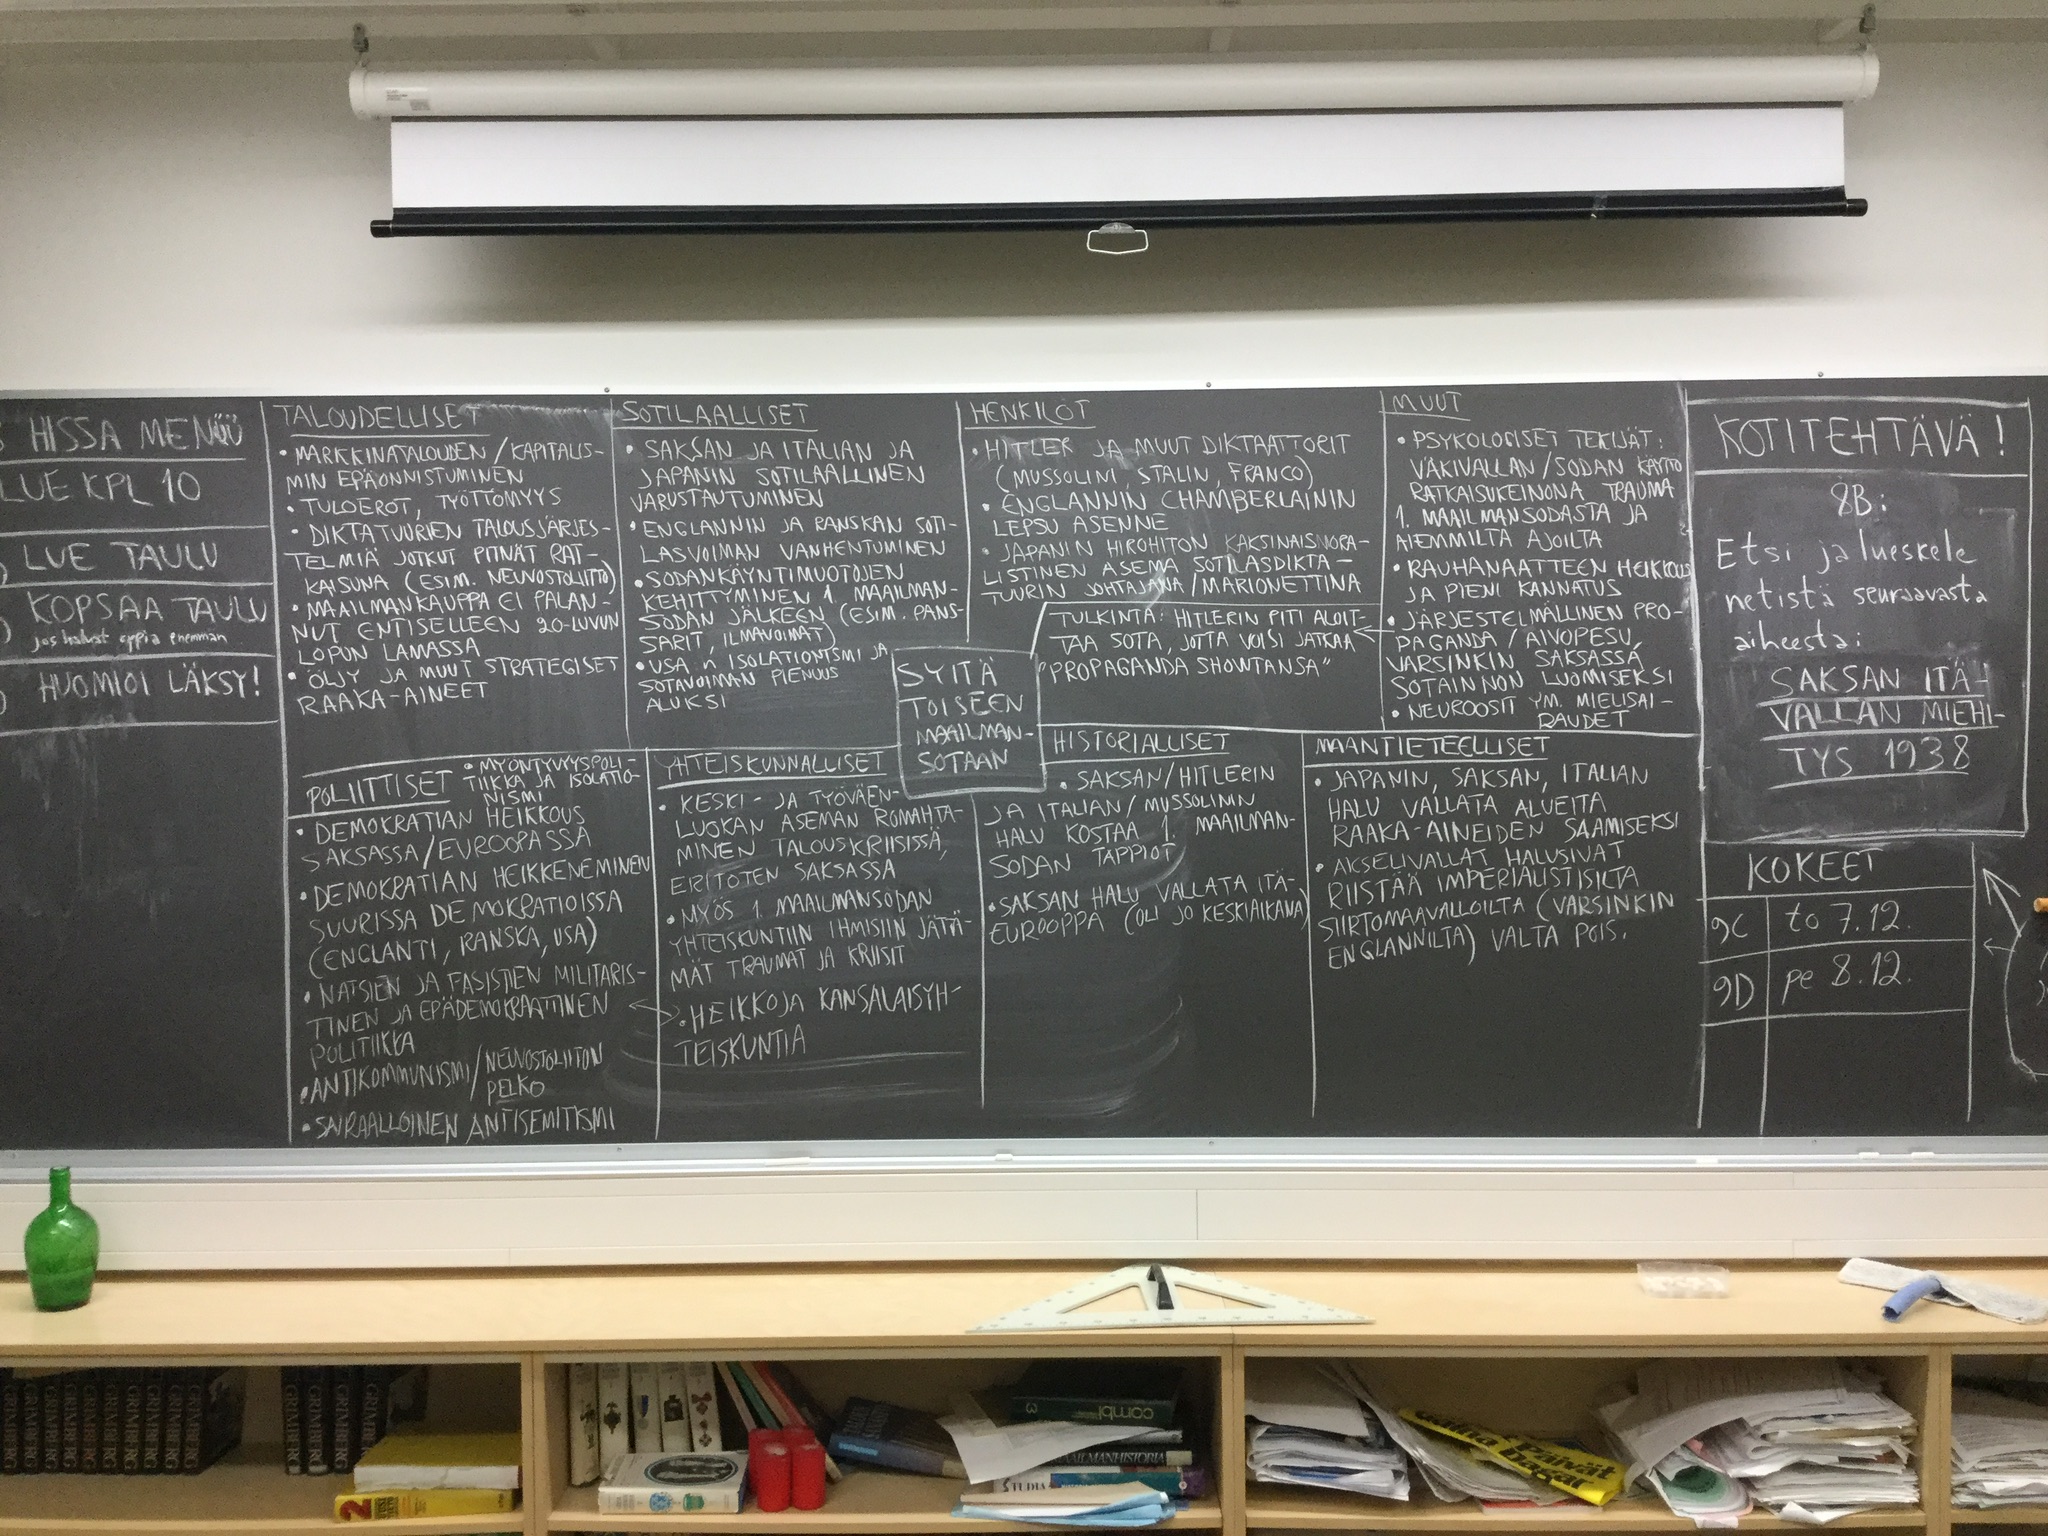 HISSA MENÜÜ
LUE KPL 10
LUE TAULU
KOPSAA TAULU
jos haluat oppia enemmän
HUOMIOI LÄKSY!
TALOUDELLISET
• MARKKINATALOUDEN/KAPITALIS-
MIN EPÄONNISTUMINEN
• TULOEROT, TYÖTTÖMYYS
• DIKTATUURIEN TALOUSJÄRJES-
TELMIÄ JOTKUT PITIVÄT RAT-
KAISUNA (ESIM. NEUVOSTOLIITTO)
• MAAILMANKAUPPA EI PALAN-
NUT ENTISELLEEN 20-LUVUN
LOPUN LAMASSA
• ÖLJY JA MUUT STRATEGISET
RAAKA-AINEET
SOTILAALLISET
• SAKSAN JA ITALIAN JA
JAPANIN SOTILAALLINEN
VARUSTAUTUMINEN
• ENGLANNIN JA RANSKAN SOTI-
LASVOIMAN VANHENTUMINEN
• SODANKÄYNTIMUOTOJEN
KEHITTYMINEN 1. MAAILMAN-
SODAN JÄLKEEN (ESIM. PANS-
SARIT, ILMAVOIMAT)
• USA:n ISOLATIONISMI JA
SOTAVOIMAN PIENUUS
ALUKSI
HENKILÖT
• HITLER JA MUUT DIKTAATTORIT
(MUSSOLINI, STALIN, FRANCO)
• ENGLANNIN CHAMBERLAININ
LEPSU ASENNE
• JAPANIN HIROHITON KAKSINAISMORA-
LISTINEN ASEMA SOTILASDIKTA-
TUURIN JOHTAJANA/MARIONETTINA
TULKINTA: HITLERIN PITI ALOIT-
TAA SOTA, JOTTA VOISI JATKAA
"PROPAGANDA SHOWTANSA"
MUUT
• PSYKOLOGISET TEKIJÄT:
VÄKIVALLAN/SODAN KÄYTTÖ
RATKAISUKEINONA TRAUMA
1. MAAILMANSODASTA JA
AIEMMILTA AJOILTA
• RAUHANAATTEEN HEIKKOUS
JA PIENI KANNATUS
• JÄRJESTELMÄLLINEN PRO-
PAGANDA/AIVOPESU,
VARSINKIN SAKSASSA
SOTAINNON LUOMISEKSI
• NEUROOSIT YM. MIELISAI-
RAUDET
SYITÄ
TOISEEN
MAAILMAN-
SOTAAN
POLIITTISET
• MYÖNTYVYYSPOLI-
TIIKKA JA ISOLATIO-
NISMI
• DEMOKRATIAN HEIKKOUS
SAKSASSA/EUROOPASSA
• DEMOKRATIAN HEIKKENEMINEN
SUURISSA DEMOKRATIOISSA
(ENGLANTI, RANSKA, USA)
• NATSIEN JA FASISTIEN MILITARIS-
TINEN JA EPÄDEMOKRAATTINEN
POLITIIKKA
• ANTIKOMMUNISMI/NEUVOSTOLIITON
PELKO
• SAIRAALLOINEN ANTISEMITISMI
YHTEISKUNNALLISET
• KESKI- JA TYÖVÄEN-
LUOKAN ASEMAN ROMAHTA-
MINEN TALOUSKRIISISSÄ,
ERITOTEN SAKSASSA
• MYÖS 1. MAAILMANSODAN
YHTEISKUNTIIN IHMISIIN JÄTTÄ-
MÄT TRAUMAT JA KRIISIT
• HEIKKOJA KANSALAISYH-
TEISKUNTIA
HISTORIALLISET
• SAKSAN/HITLERIN
JA ITALIAN/MUSSOLININ
HALU KOSTAA 1. MAAILMAN-
SODAN TAPPIOT
• SAKSAN HALU VALLATA ITÄ-
EUROOPPA (OLI JO KESKIAIKANA)
MAANTIETEELLISET
• JAPANIN, SAKSAN, ITALIAN
HALU VALLATA ALUEITA
RAAKA-AINEIDEN SAAMISEKSI
• AKSELIVALLAT HALUSIVAT
RIISTÄÄ IMPERIALISTISILTA
SIIRTOMAAVALLOILTA (VARSINKIN
ENGLANNILTA) VALTA POIS.
KOTITEHTÄVÄ!
8B:
Etsi ja lueskele
netistä seuraavasta
aiheesta:
SAKSAN ITÄ-
VALLAN MIEHI-
TYS 1938
KOKEET
9C to 7.12.
9D pe 8.12.
GRIMBERG
GRIMBERG
GRIMBERG
GRIMBERG
combi
3
MAAILMANHISTORIA
STUDIA
2
Päivät